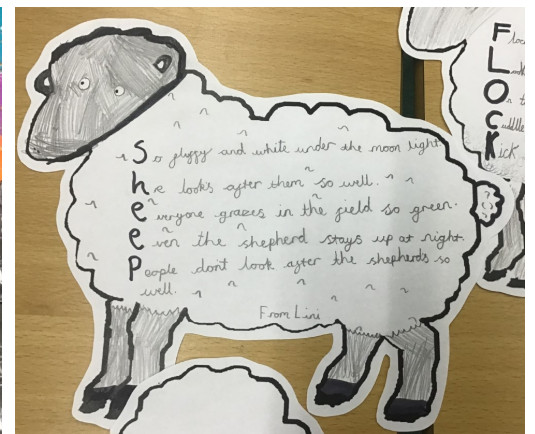 So fluffy and white under the moon light
He looks after them so well.
Everyone grazes in the field so green.
Even the shepherd stays up at night.
People dont look after the shepherds so
well.
From Lini
FLOCK
Kick